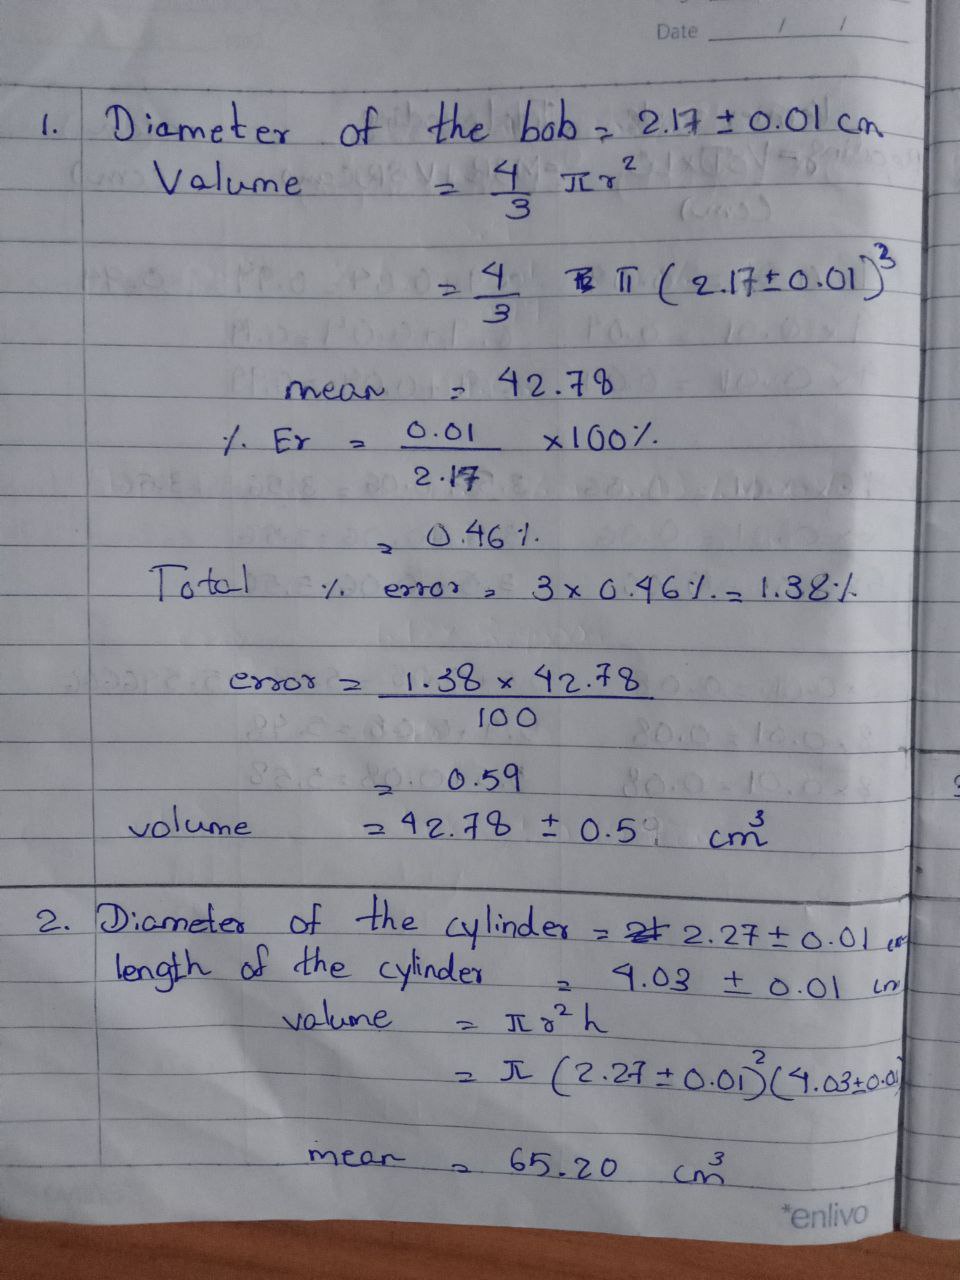 Date / /
1. Diameter of the bob = 2.17 ± 0.01 cm
Valume = 4/3 π r²
= 4/3 π (2.17 ± 0.01)³
mean = 42.78
% Er = 0.01/2.17 × 100%
= 0.46 %
Total % error = 3 × 0.46 % = 1.38 %
error = 1.38 × 42.78 / 100
= 0.59
volume = 42.78 ± 0.59 cm³
2. Diameter of the cylinder = 2.27 ± 0.01 cm
length of the cylinder = 4.03 ± 0.01 cm
valume = π r² h
= π (2.27 ± 0.01)² (4.03 ± 0.01)
mean = 65.20 cm³
*enlivo